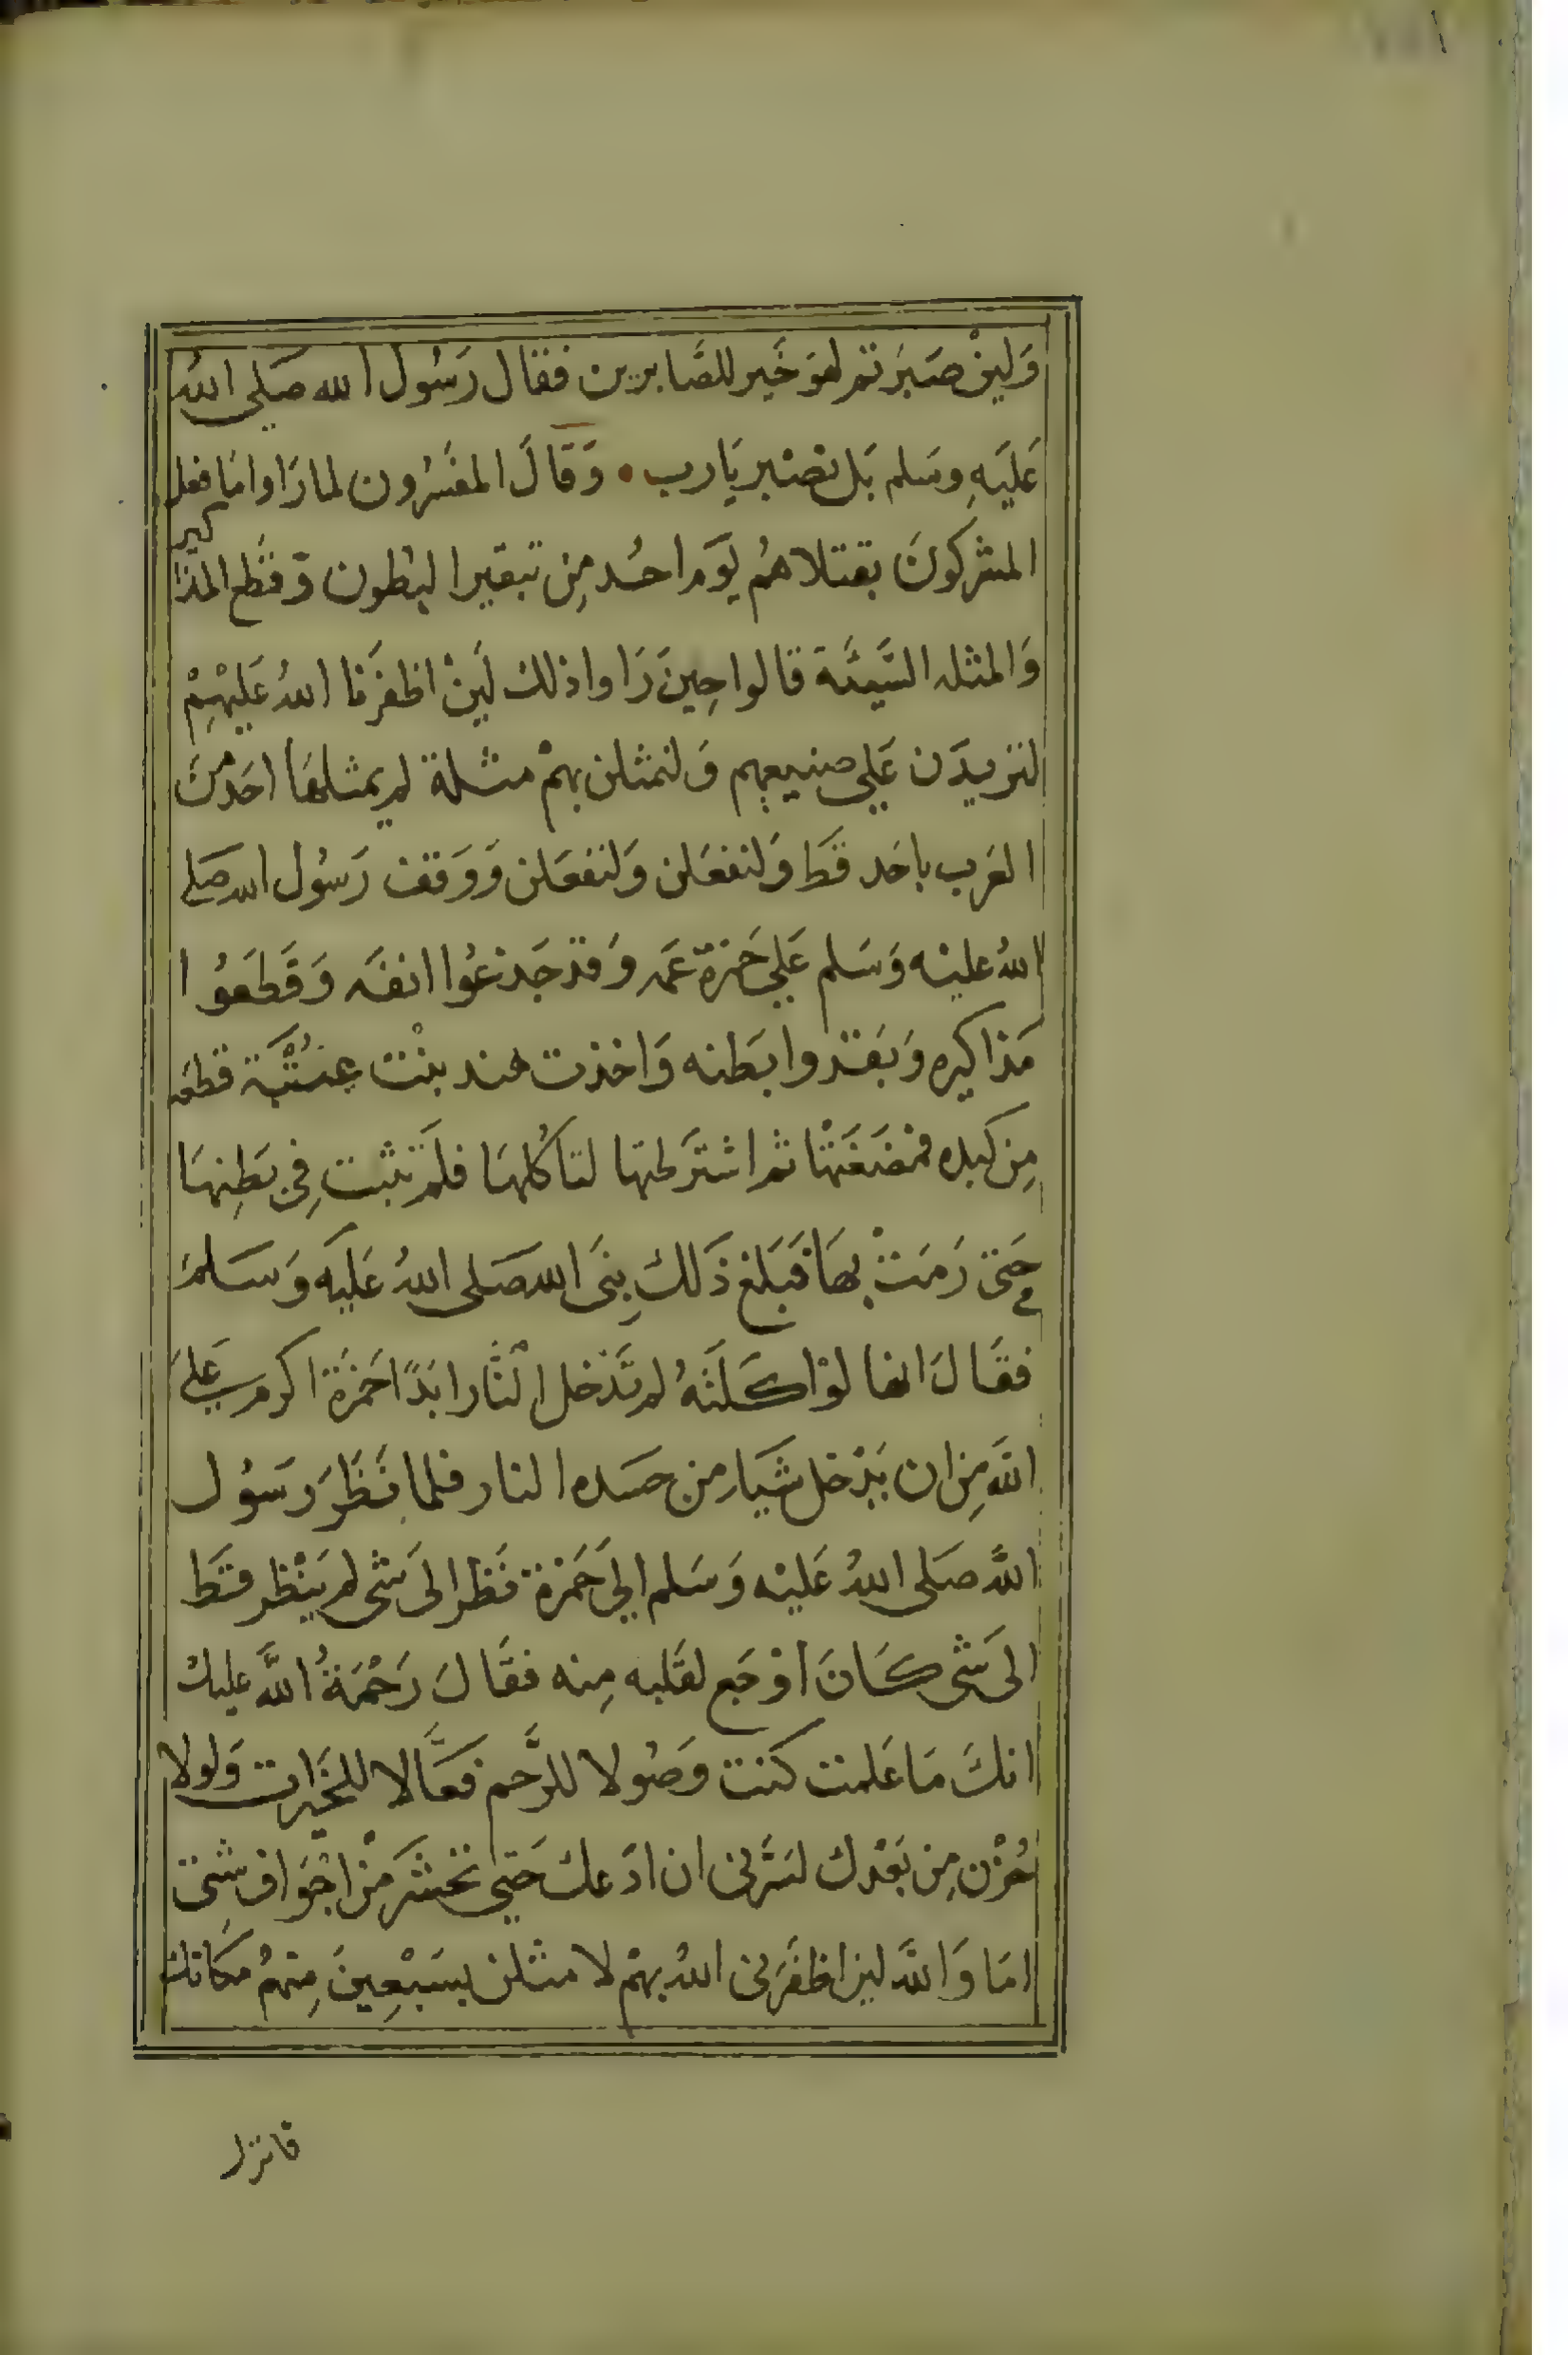 وَلَيِنْ صَبَرتم لهوَ خَير للصَّابرين فقال رَسُول الله صَلى اللهُ
عَليَهِ وسَلم بَل نصْبر يَا رب • وَقَالَ المفسّرُون لما رَاوا مَا فعل
المشركونَ بقتلاهُم يَوم احُد مِن تبقير البُطون وَقطع المذاكير
وَالمثله السَّيئَة قالوا حِينَ رَاوا ذلك لَيِنْ اظفرَنا اللهُ عَليْهِمْ
لنزيدَن عَلى صنيعهم وَلنمثلن بهمْ مثلة لم يمثلهَا احَد منَ
العَرب باحَد قَط وَلنفعَلن وَلنفعَلن وَوَقف رَسُول الله صَلى
اللهُ عليْه وَسَلم عَلى حَمزَة عَمه وَقد جَدعُوا انفَه وَقَطعَوُا
مَذاكيره وَبَقروا بَطنه وَاخذت هند بنْت عُتْبَة قطعَه
مِن كبده فمضَغَتْها ثم اشترطتها لتاكُلهَا فلمْ تثبت فِي بَطِنهَا
حَتى رَمَتْ بهَا فَبَلغ ذَلكَ نبىَ الله صَلى اللهُ عَليَه وَسَلمَ
فقَالَ انها لوْ اكَلَتهُ لم تَدْخل النَّار ابَدًا حَمزَة اكرم عَلىَ
اللَّه مِن ان يَدْخل شَيَا مِن جسَده النار فلما نَظَرَ رَسُول
اللَّه صَلى اللهُ عَليْه وَسَلم الى حَمزة نَظر الى شى لم يَنْظر قَط
الى شى كَانَ اوْجَع لقَلبه مِنه فقَالَ رَحْمَةُ اللَّه عليك
انكَ مَا عَلمت كنت وَصُولا للرَّحم فعَّالا للخَيرات وَلولا
حُزْن مِن بَعْدك لسَرَّنى ان ادَعك حَتى تحشَر مِنْ اجْوَاف شتى
امَا وَاللَّه لين اظفَرَنى اللهُ بهمْ لامثلن بسَبْعِينَ مِنهمُ مَكانك
فانزل